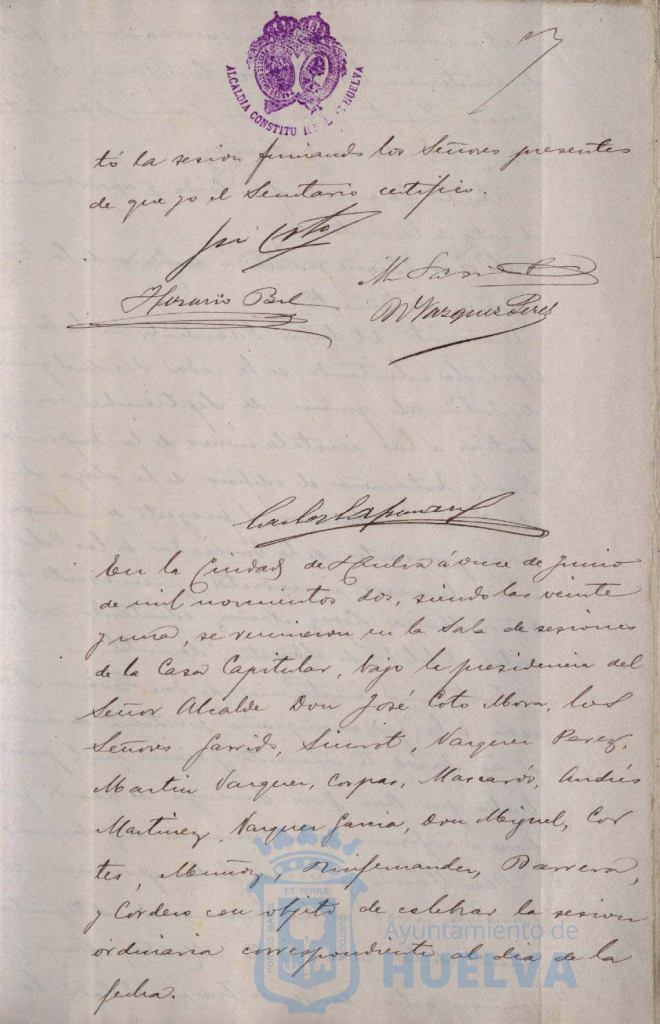 ALCALDIA CONSTITU DE HUELVA
tó la sesion firmando los Señores presentes
de que yo el Secretario certifico.
José Coto
Horacio Bel
M Vazquez Perez
En la Ciudad de Huelva á once de Junio
de mil novecientos dos, siendo las veinte
y una, se reunieron en la Sala de sesiones
de la Casa Capitular, bajo la presidencia del
Señor Alcalde Don José Coto Mora, los
Señores Garrido, Siurot, Vazquez Perez,
Martin Vazquez, Corpas, Mascarós, Andrés
Martinez, Vazquez Garcia, Don Miguel, Cor
tes, Muñoz, Barrera,
y Cordero con objeto de celebrar la sesion
ordinaria correspondiente al dia de la
fecha.
ET TERRÆ
PORTUS MARIS
CUSTODIA
Ayuntamiento de
HUELVA